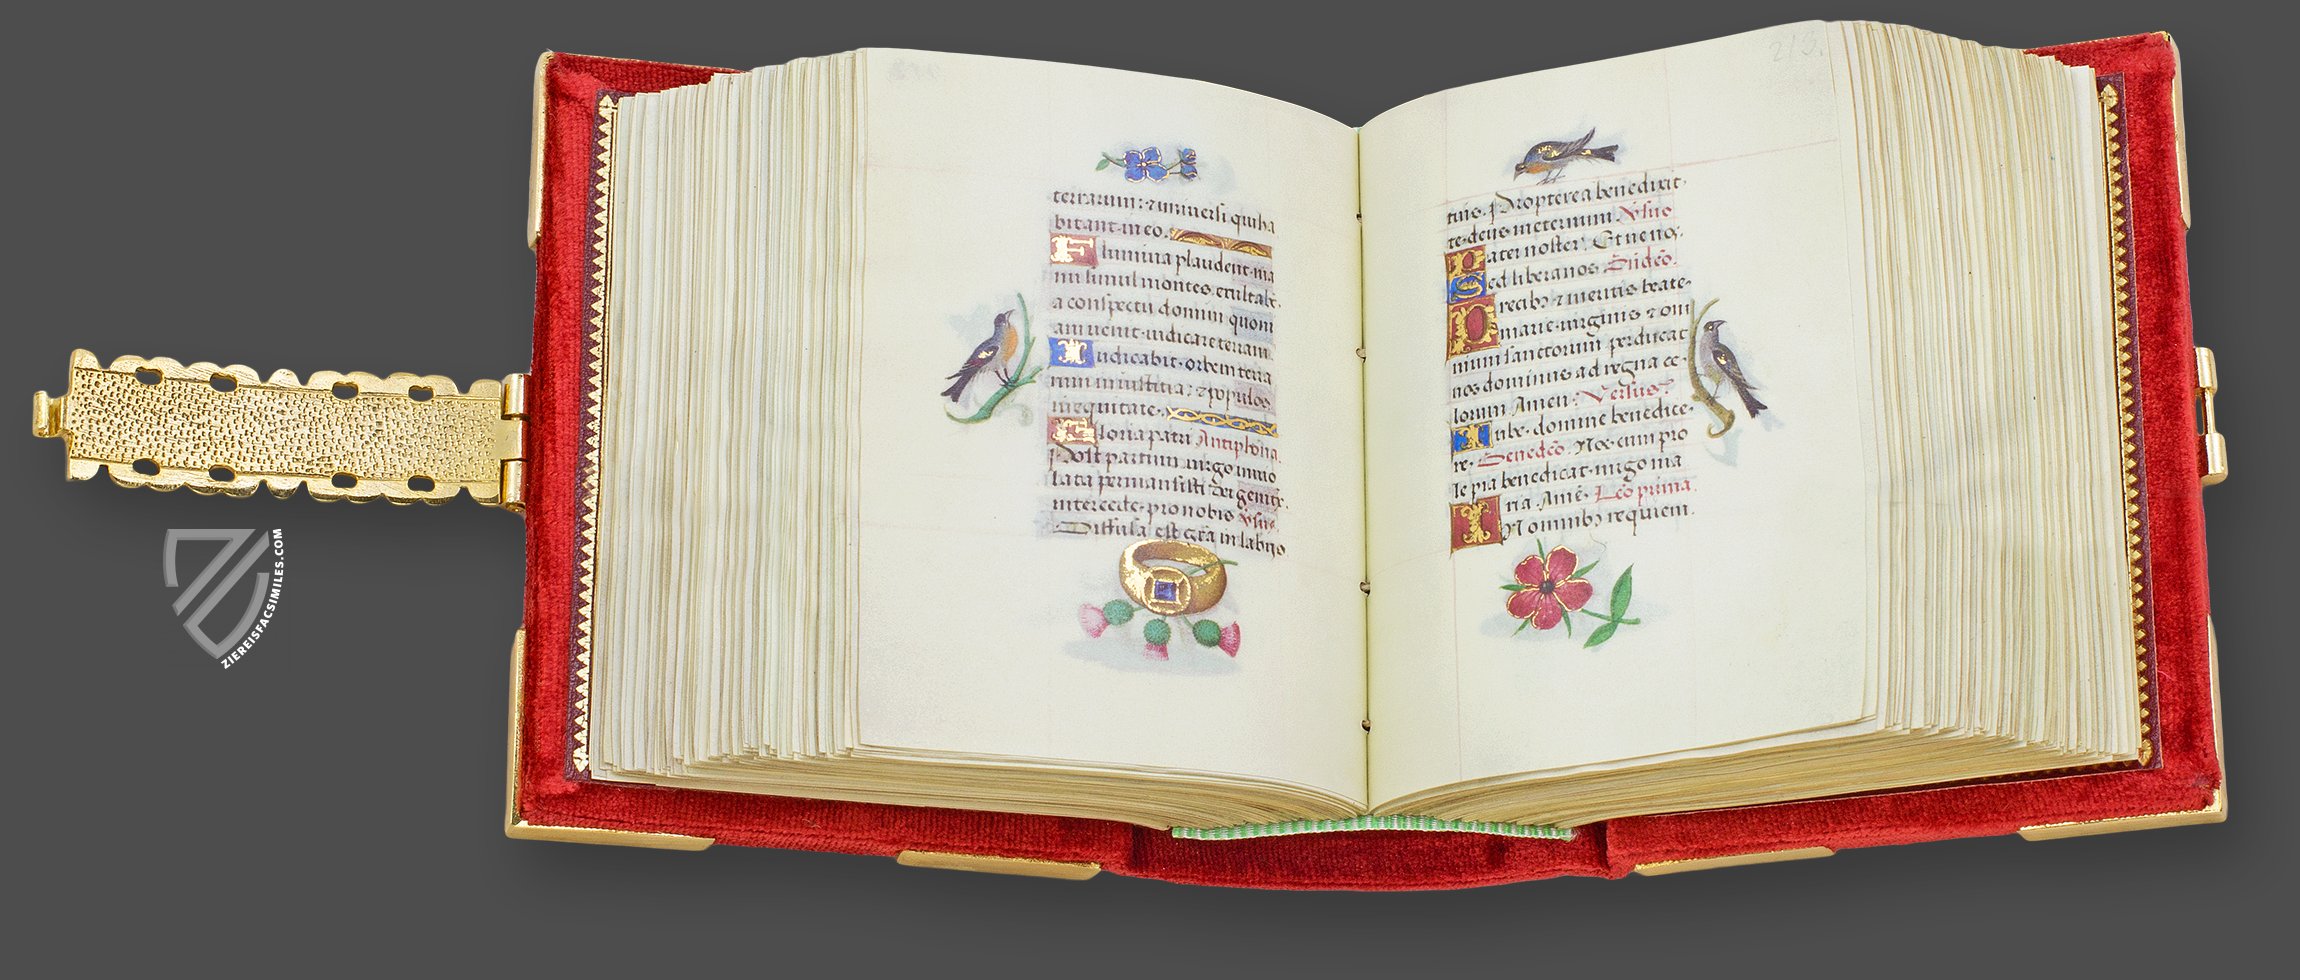 terrarum: & universi qui ha
bitant in eo.
Flumina plaudent ma
nu simul montes exultabt.
a conspectu domini quoni
am uenit iudicare terram.
Iudicabit orbem terra
rum in iustitia: & populos
in equitate.
Gloria patri Antiphona.
Post partum uirgo inuio
lata permansisti dei genitx.
intercede pro nobis vsus.
Diffusa est gra in labijs
213.
tuis. Propterea benedixit.
te deus in eternum. Vsus
Pater noster. Et ne nos.
Sed libera nos Ondeo.
Precibz & meritis beate.
marie uirginis & om
nium sanctorum perducat
nos dominus ad regna ce-
lorum Amen. Versus
Iube domine benedice.
re. Benedco. Nos cum pro
le pia benedicat uirgo ma
ria. Ame. Leo prima.
IN omnibz requiem.
ZIEREISFACSIMILES.COM